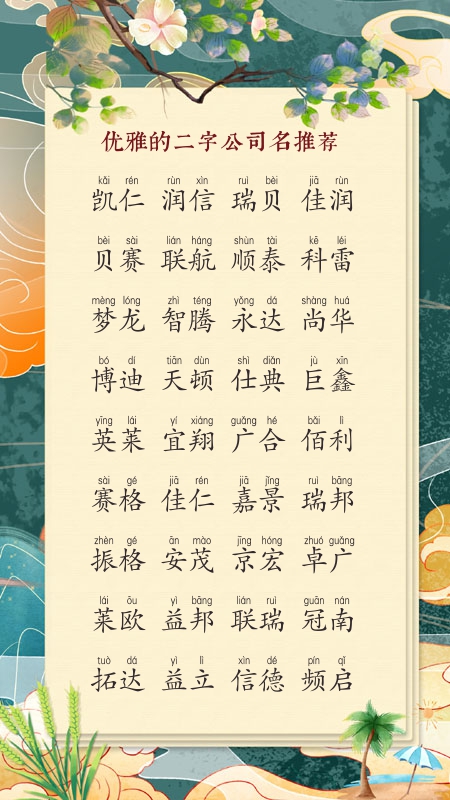 优雅的二字公司名推荐
kǎi rén rùn xìn ruì bèi jiā rùn
凯仁 润信 瑞贝 佳润
bèi sài lián háng shùn tài kē léi
贝赛 联航 顺泰 科雷
mèng lóng zhì téng yǒng dá shàng huá
梦龙 智腾 永达 尚华
bó dí tiān dùn shì diǎn jù xīn
博迪 天顿 仕典 巨鑫
yīng lái yí xiáng guǎng hé bǎi lì
英莱 宜翔 广合 佰利
sài gé jiā rén jiā jǐng ruì bāng
赛格 佳仁 嘉景 瑞邦
zhèn gé ān mào jīng hóng zhuó guǎng
振格 安茂 京宏 卓广
lái ōu yì bāng lián ruì guān nán
莱欧 益邦 联瑞 冠南
tuò dá yì lì xìn dé pín qǐ
拓达 益立 信德 频启